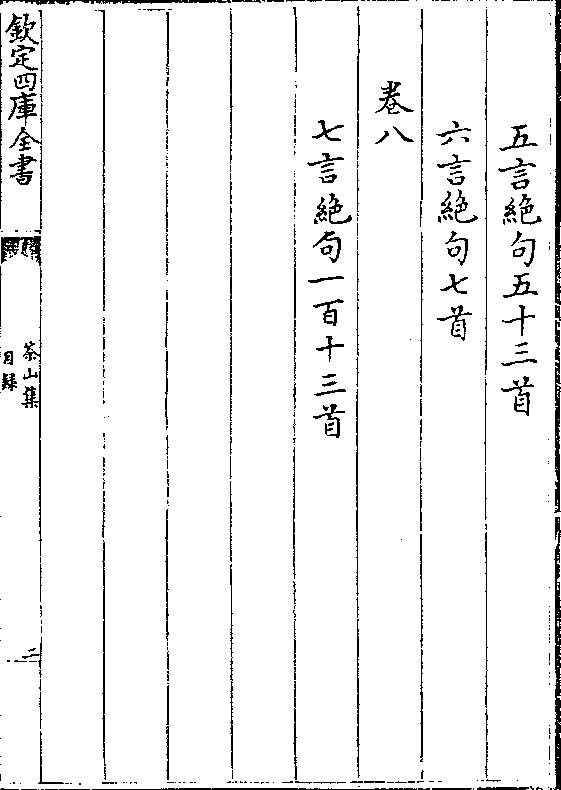 五言絶句五十三首
六言絶句七首
卷八
七言絶句一百十三首
欽定四庫全書
茶山集
目録
二